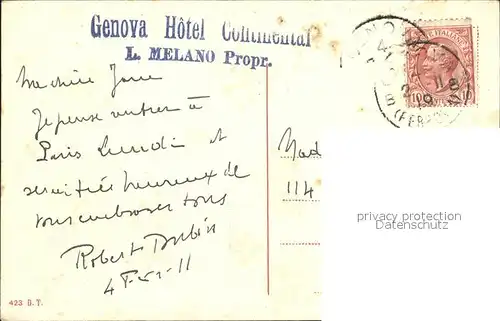 Genova Hôtel Continental
L. MELANO Propr.
Ma chère Jane
Je pense rentrer à
Paris Lundi et
serai très heureux de
vous embrasser tous
Robert
4 Fev 11
114
privacy protection
DatenSchutz
423 B. T.